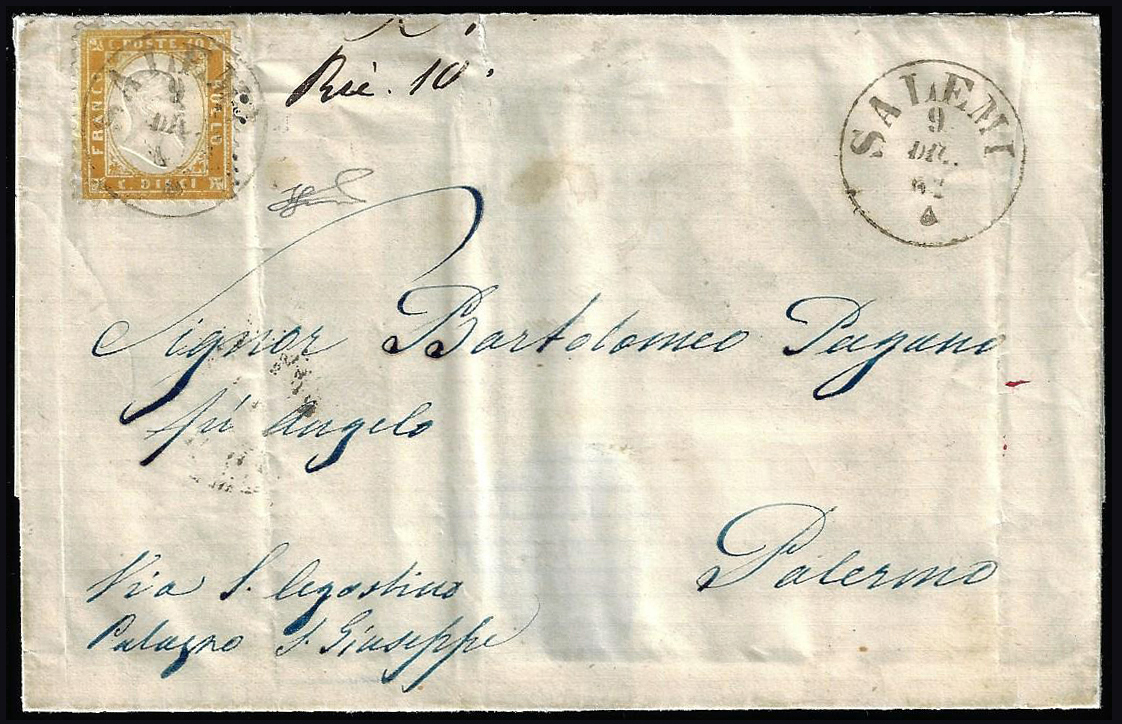 C. POSTE 10
FRANCO
BOLLO
SALEMI
9
DIC.
Ric. 10
SALEMI
9
DIC.
62
Signor Bartolomeo Pagano
fù Angelo
Palermo
Via S. Agostino
Palazzo S. Giuseppe